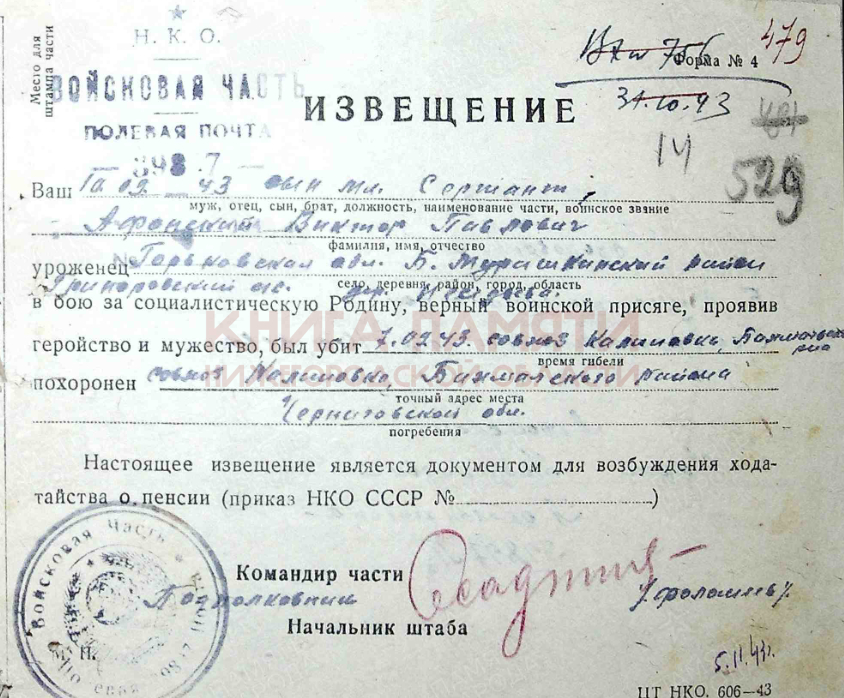 Место для
штампа части
Н. К. О.
ВОЙСКОВАЯ ЧАСТЬ
ПОЛЕВАЯ ПОЧТА
Форма № 4
479
31.10.43
ИЗВЕЩЕНИЕ
14
529
Ваш 10.09 43 сын мл. Сержант
муж, отец, сын, брат, должность, наименование части, воинское звание
Афонский Виктор Павлович
фамилия, имя, отчество
уроженец Горьковская обл. Б. Мурашкинский район
село, деревня, район, город, область
в бою за социалистическую Родину, верный воинской присяге, проявив
геройство и мужество, был убит 7.09.43. совхоз Калиновка,
время гибели
похоронен совхоз Калиновка, Бахмачского района
точный адрес места
Черниговской обл.
погребения
КНИГА ПАМЯТИ
НИЖЕГОРОДСКОЙ ОБЛАСТИ
Настоящее извещение является документом для возбуждения хода-
тайства о пенсии (приказ НКО СССР № )
Войсковая часть
Командир части
Подполковник
Начальник штаба
5.11.43г.
ЦТ НКО. 606—43